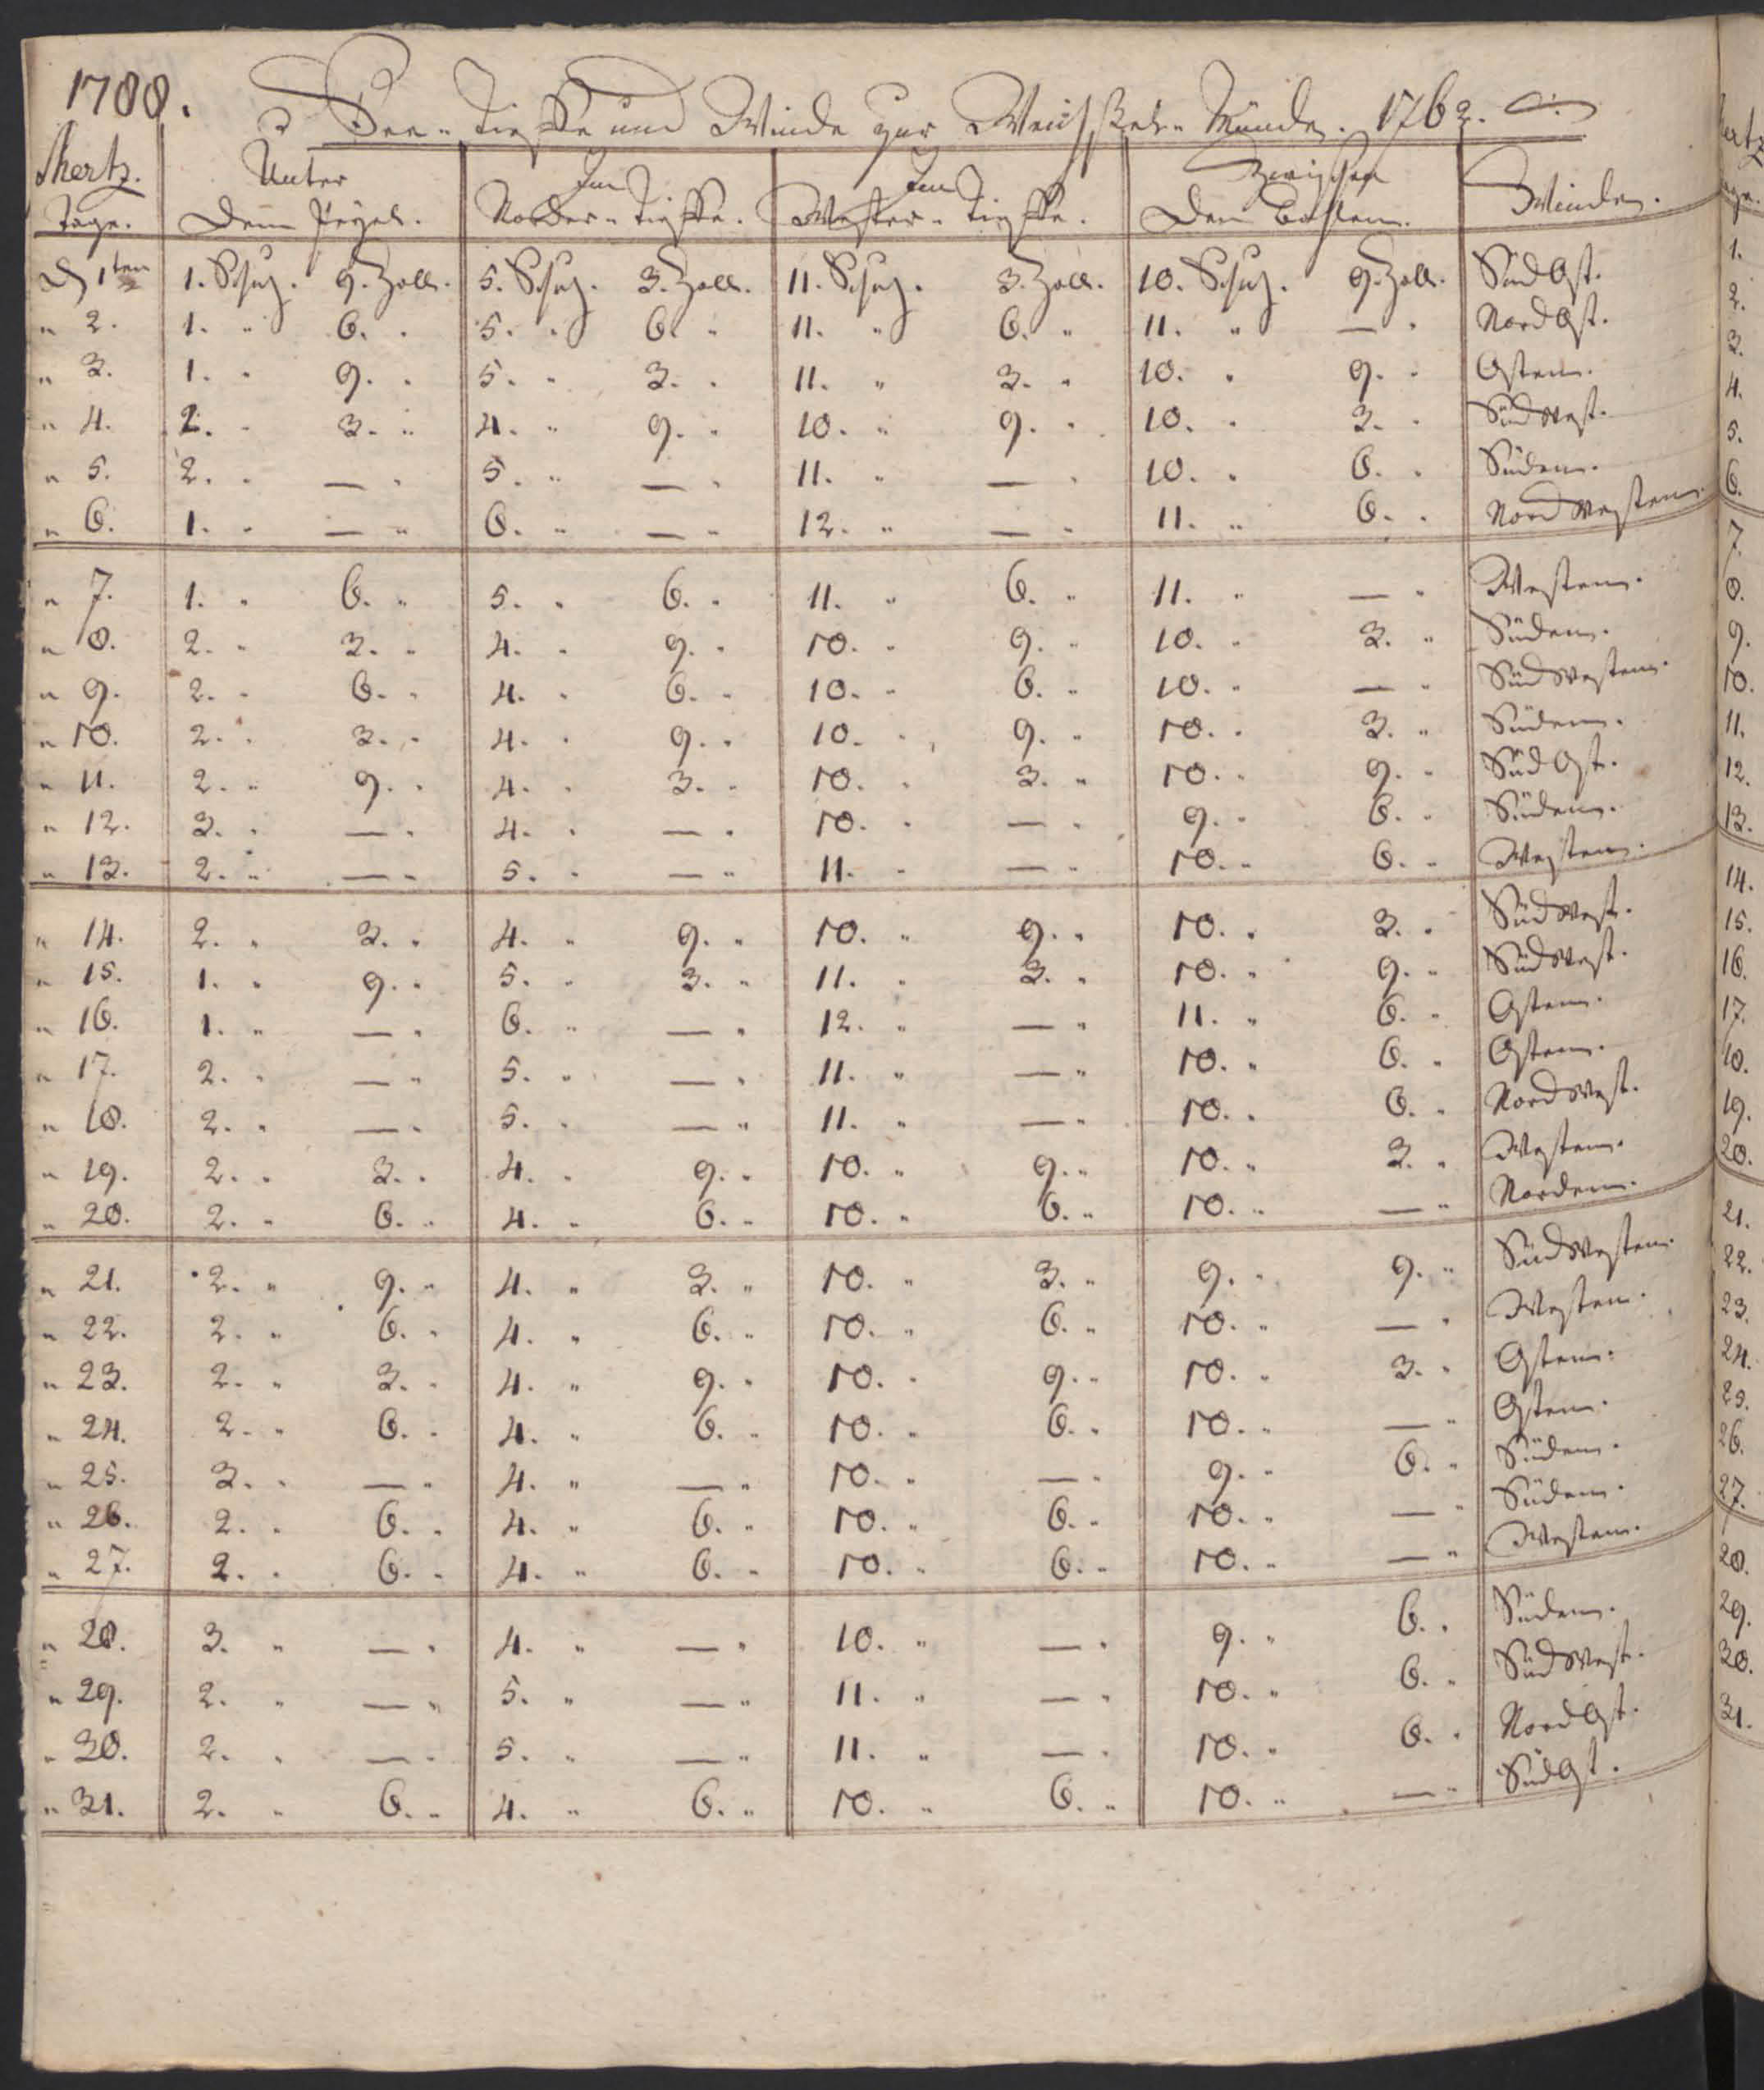 1788.
See-Tieffe und Winde zur Weichsel-Münde. 1762.
Mertz. Unter Im Im Zwischen Winde.
Tage. dem Pegel. Norder-Tieffe. Wester-Tieffe. den Bohlen.
D 1ten 1. Schuh. 9. Zoll. 5. Schuh. 3. Zoll. 11. Schuh. 3. Zoll. 10. Schuh. 9. Zoll. Süd Ost.
" 2. 1. " 6. " 5. " 6. " 11. " 6. " 11. " — " Nord Ost.
" 3. 1. " 9. " 5. " 3. " 11. " 3. " 10. " 9. " Osten.
" 4. 2. " 3. " 4. " 9. " 10. " 9. " 10. " 3. " Süd West.
" 5. 2. " — " 5. " — " 11. " — " 10. " 6. " Süden.
" 6. 1. " — " 6. " — " 12. " — " 11. " 6. " Nord Westen.
" 7. 1. " 6. " 5. " 6. " 11. " 6. " 11. " — " Westen.
" 8. 2. " 3. " 4. " 9. " 10. " 9. " 10. " 3. " Süden.
" 9. 2. " 6. " 4. " 6. " 10. " 6. " 10. " — " Süd Westen.
" 10. 2. " 3. " 4. " 9. " 10. " 9. " 10. " 3. " Süden.
" 11. 2. " 9. " 4. " 3. " 10. " 3. " 10. " 9. " Süd Ost.
" 12. 3. " — " 4. " — " 10. " — " 9. " 6. " Süden.
" 13. 2. " — " 5. " — " 11. " — " 10. " 6. " Westen.
" 14. 2. " 3. " 4. " 9. " 10. " 9. " 10. " 3. " Süd West.
" 15. 1. " 9. " 5. " 3. " 11. " 3. " 10. " 9. " Süd West.
" 16. 1. " — " 6. " — " 12. " — " 11. " 6. " Osten.
" 17. 2. " — " 5. " — " 11. " — " 10. " 6. " Osten.
" 18. 2. " — " 5. " — " 11. " — " 10. " 6. " Nord West.
" 19. 2. " 3. " 4. " 9. " 10. " 9. " 10. " 3. " Westen.
" 20. 2. " 6. " 4. " 6. " 10. " 6. " 10. " — " Norden.
" 21. 2. " 9. " 4. " 3. " 10. " 3. " 9. " 9. " Süd Westen.
" 22. 2. " 6. " 4. " 6. " 10. " 6. " 10. " — " Westen.
" 23. 2. " 3. " 4. " 9. " 10. " 9. " 10. " 3. " Osten.
" 24. 2. " 6. " 4. " 6. " 10. " 6. " 10. " — " Osten.
" 25. 3. " — " 4. " — " 10. " — " 9. " 6. " Süden.
" 26. 2. " 6. " 4. " 6. " 10. " 6. " 10. " — " Süden.
" 27. 2. " 6. " 4. " 6. " 10. " 6. " 10. " — " Westen.
" 28. 3. " — " 4. " — " 10. " — " 9. " 6. " Süden.
" 29. 2. " — " 5. " — " 11. " — " 10. " 6. " Süd West.
" 30. 2. " — " 5. " — " 11. " — " 10. " 6. " Nord Ost.
" 31. 2. " 6. " 4. " 6. " 10. " 6. " 10. " — " Süd Ost.
1.
2.
3.
4.
5.
6.
7.
8.
9.
10.
11.
12.
13.
14.
15.
16.
17.
18.
19.
20.
21.
22.
23.
24.
25.
26.
27.
28.
29.
30.
31.